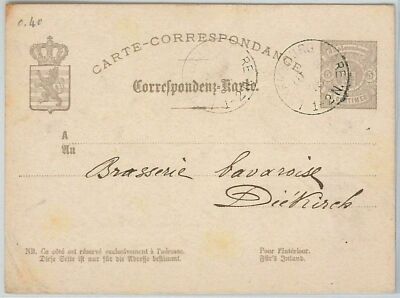 0.40
CARTE-CORRESPONDANCE
Correspondenz-Karte.
5
CENTIMES
A
An
Brasserie bavaroise
Diekirch
NB. Ce côté est réservé exclusivement à l'adresse.
Diese Seite ist nur für die Adresse bestimmt.
Pour l'intérieur.
Für's Inland.